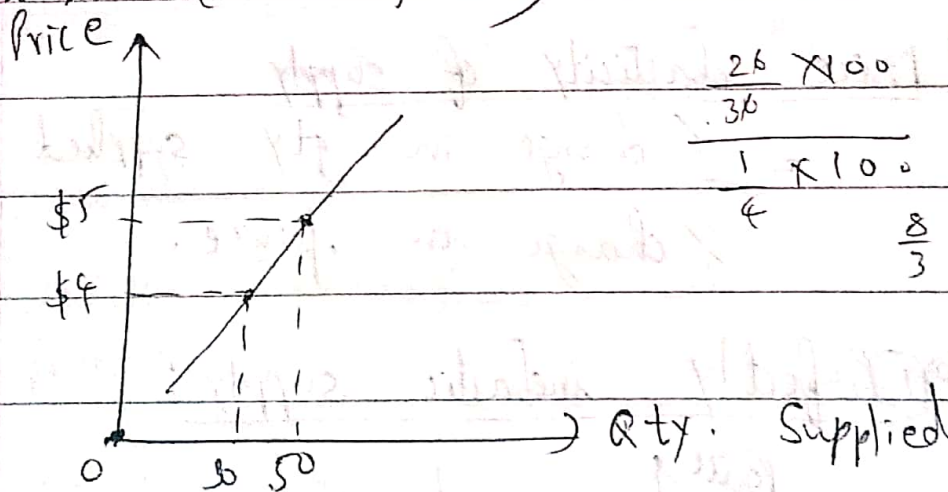 Price
20 × 100
30
1 × 100
4
8
3
$5
$4
0 30 50
Qty. Supplied